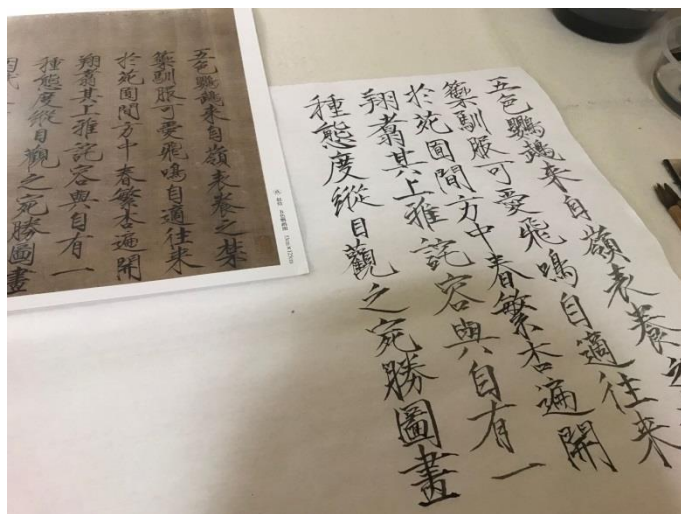 五色鸚鵡来自嶺表養之禁
籞馴服可愛飛鳴自適往来
於苑囿間方中春繁杏遍開
翔翥其上雅詫容與自有一
種態度縱目觀之宛勝圖畫
五色鸚鵡来自嶺表養之
籞馴服可愛飛鳴自適往来
於苑囿間方中春繁杏遍開
翔翥其上雅詫容與自有一
種態度縱目觀之宛勝圖畫